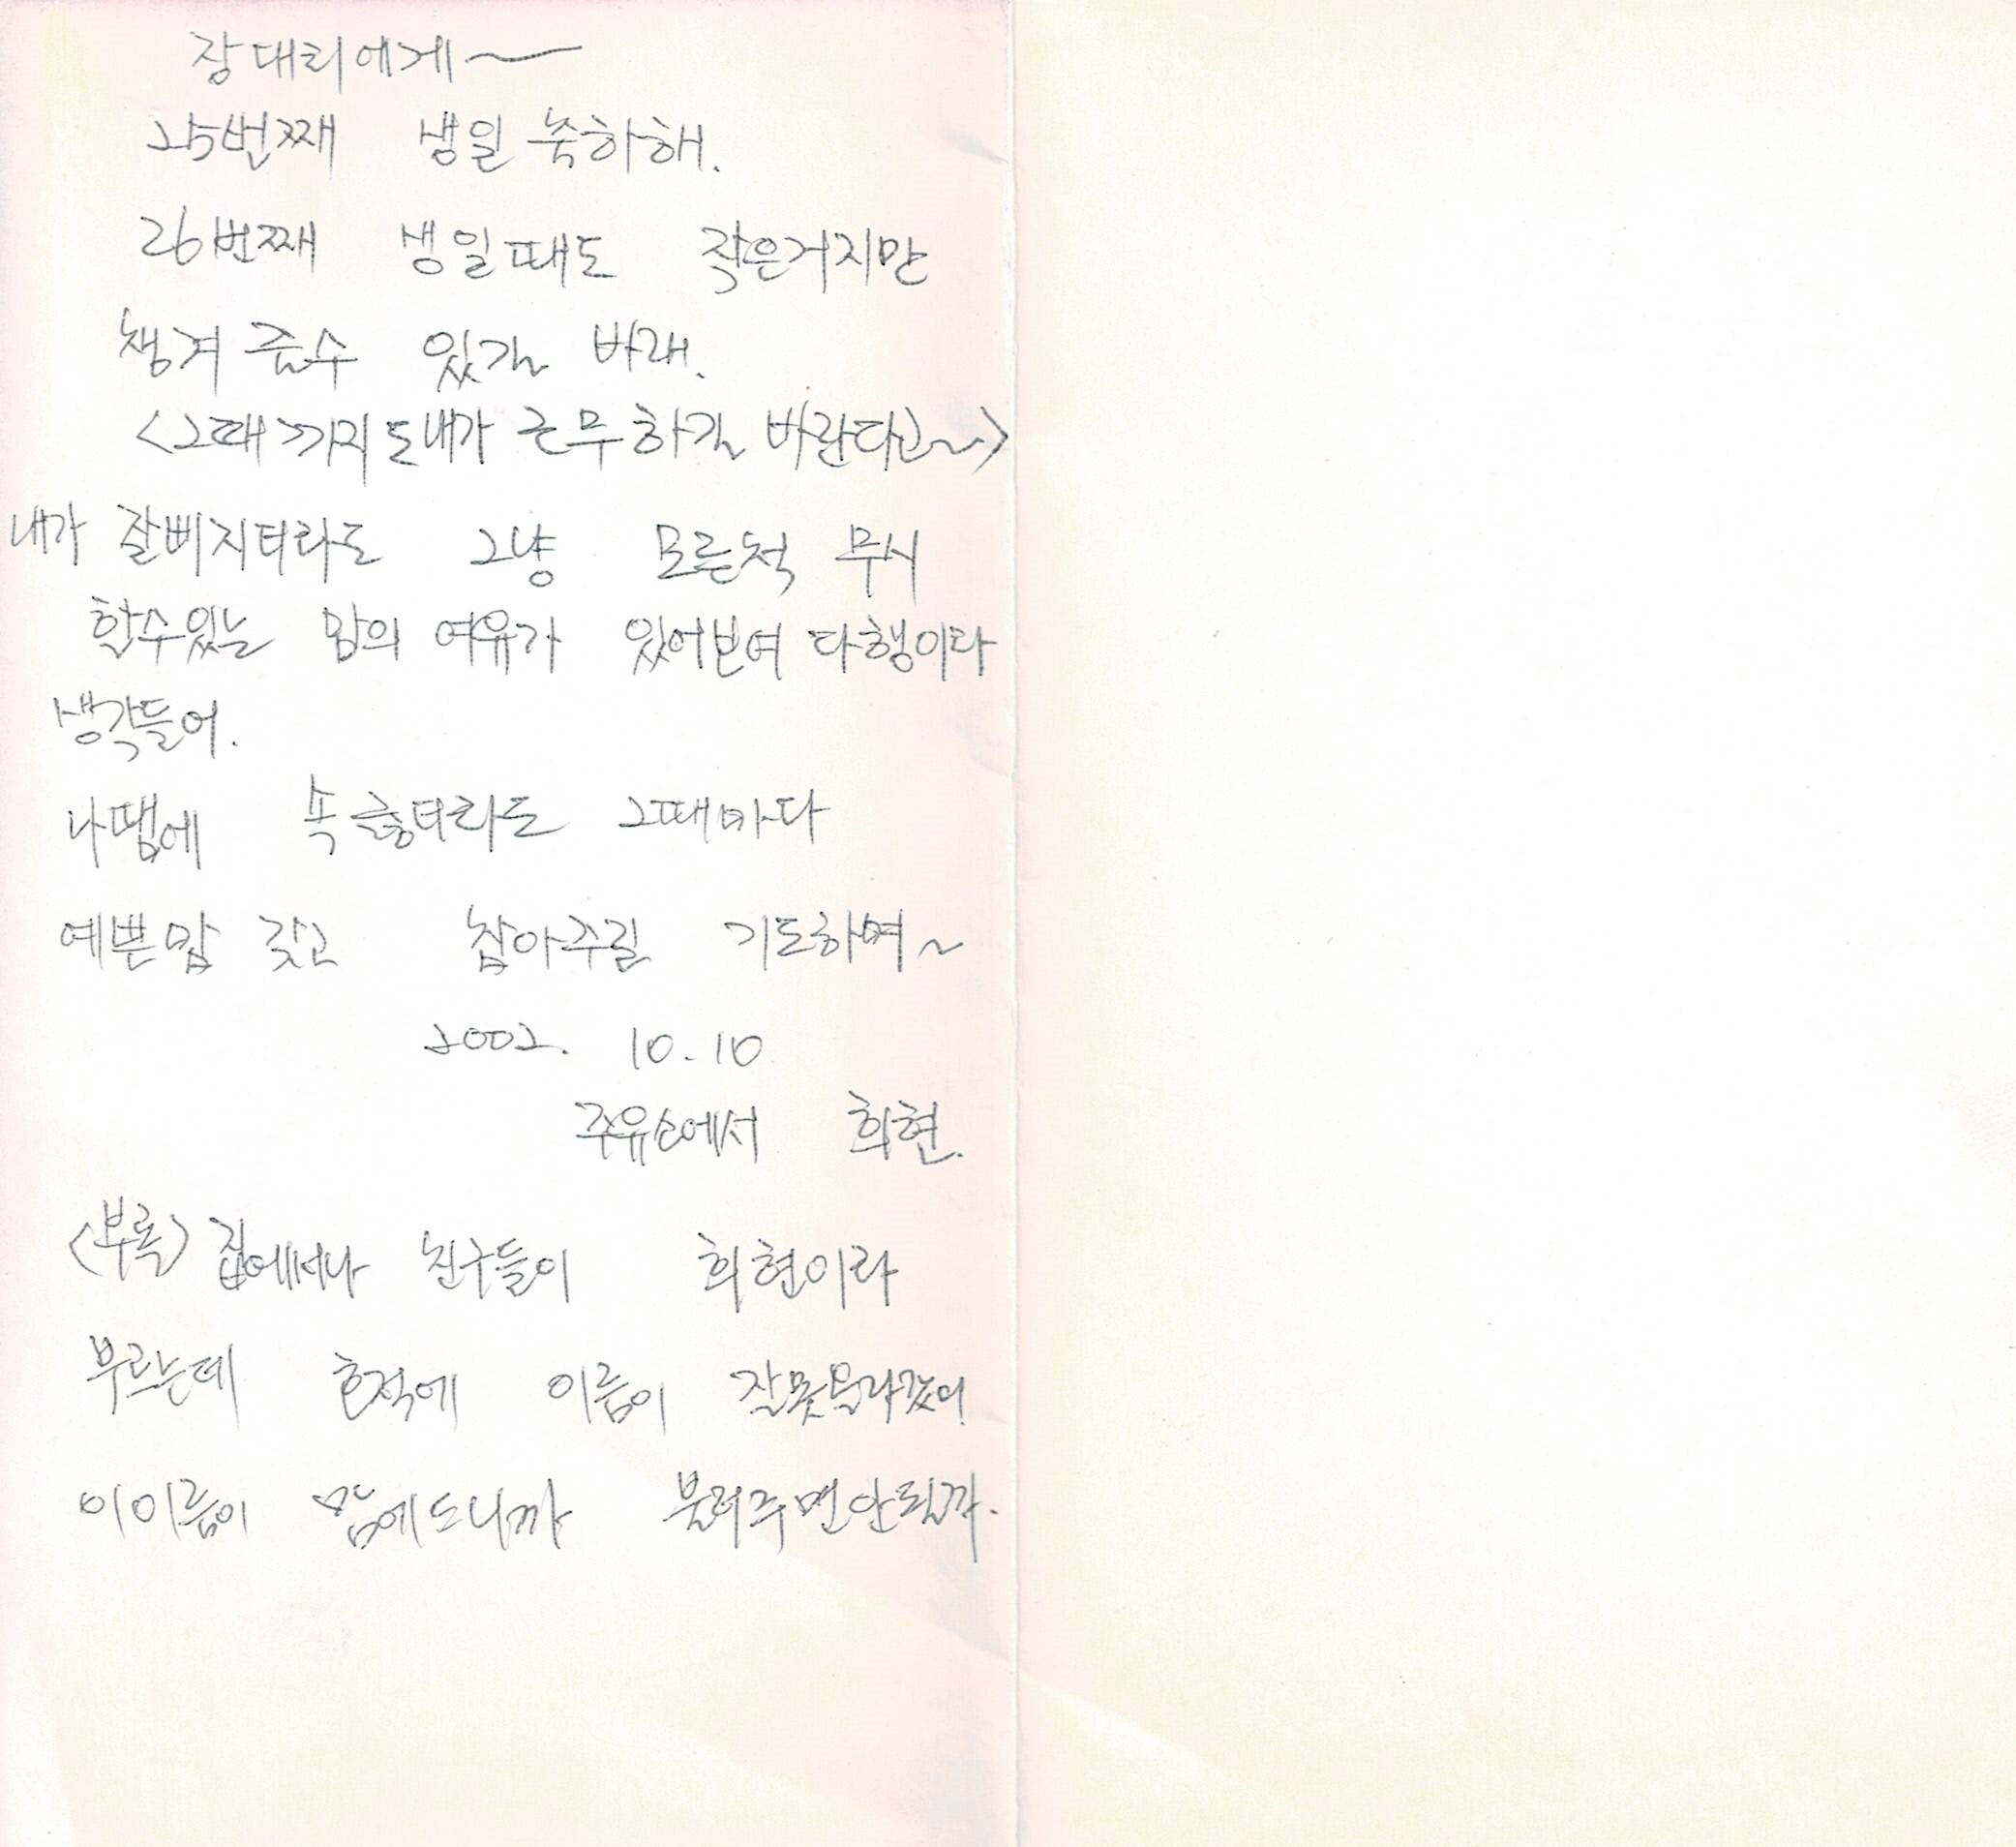 장대리에게~
25번째 생일 축하해.
26번째 생일때도 작은거지만
챙겨 줄수 있길 바래.
<그때까지도내가 근무하길 바란다고~>
내가 잘삐지더라도 그냥 모른척 무시
할수있는 맘의 여유가 있어보여 다행이다
생각들어.
나땜에 속 긇더라도 그때마다
예쁜맘 갖고 참아주길 기도하며~
2002. 10.10
주유소에서 희현.
<부록> 집에서나 친구들이 희현이라
부르는데 호적에 이름이 잘못올라갔어.
이이름이 맘에드니까 불러주면안될까.